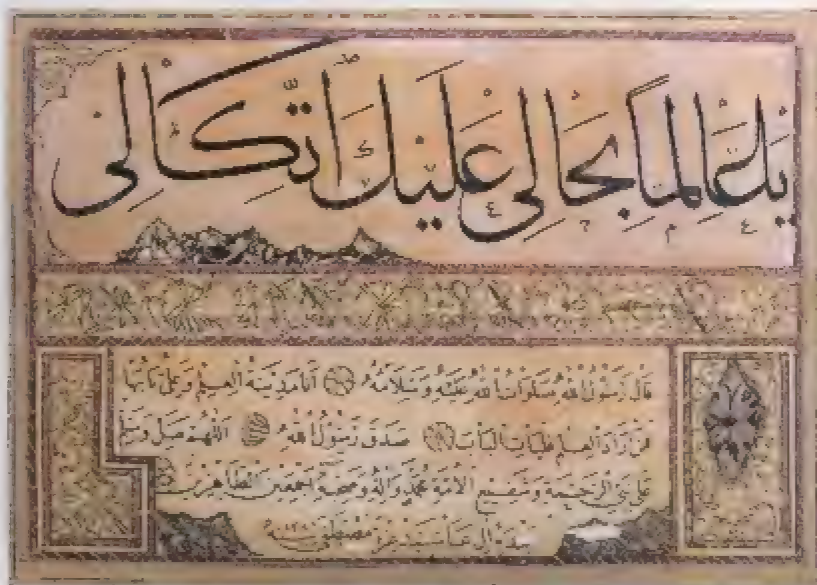 يا عالما بحالي عليك اتكالي
قال رسول الله صلوات الله عليه وسلامه أنا مدينة العلم وعلي بابها
فمن أراد العلم فليأت الباب صدق رسول الله اللهم صل وسلم
على نبي الرحمة وشفيع الأمة محمد وآله وصحبه أجمعين الطاهرين
سيد عزت مصطفى